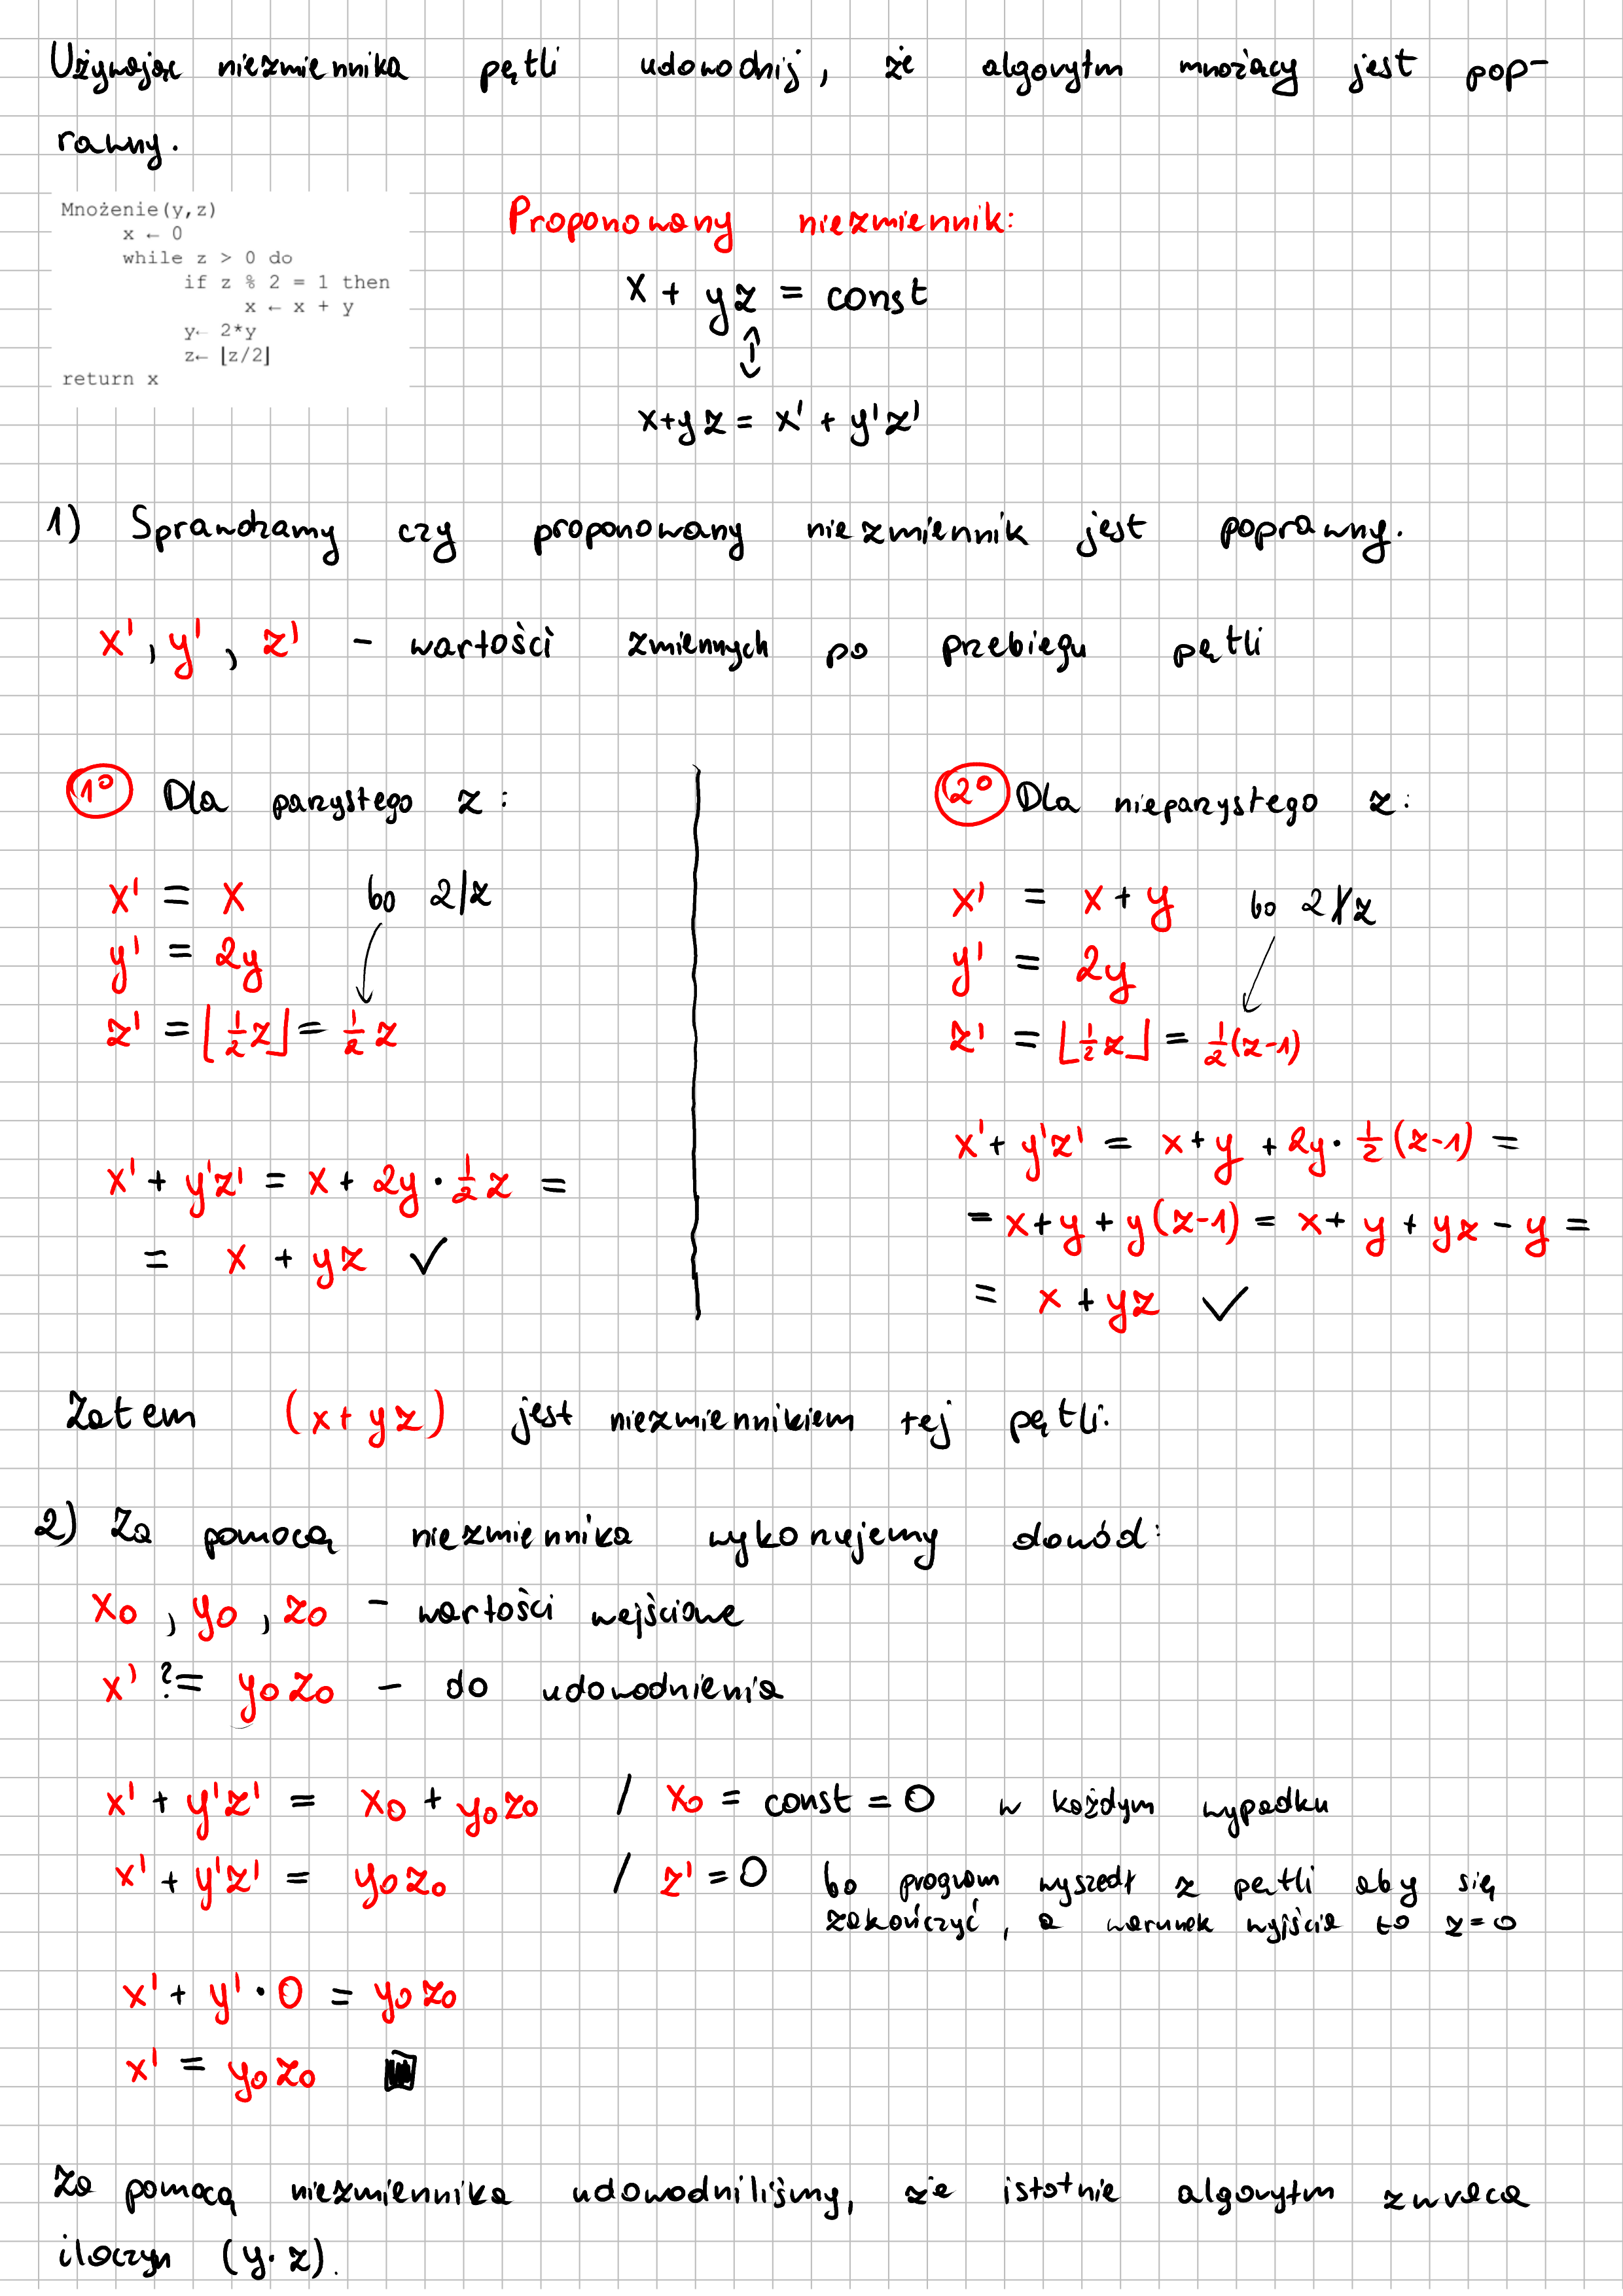 Używając niezmiennika pętli udowodnij, że algorytm mnożący jest pop-
rawny.
Mnożenie(y,z)
x ← 0
while z > 0 do
if z % 2 = 1 then
x ← x + y
y← 2*y
z← ⌊z/2⌋
return x
Proponowany niezmiennik:
x + yz = const
↕
x+yz = x' + y'z'
1) Sprawdzamy czy proponowany niezmiennik jest poprawny.
x', y', z' - wartości zmiennych po przebiegu pętli
1° Dla parzystego z:
x' = x bo 2|z
y' = 2y
z' = ⌊½z⌋ = ½z
x' + y'z' = x + 2y · ½z =
= x + yz ✓
2° Dla nieparzystego z:
x' = x + y bo 2∤z
y' = 2y
z' = ⌊½z⌋ = ½(z-1)
x' + y'z' = x + y + 2y · ½(z-1) =
= x + y + y(z-1) = x + y + yz - y =
= x + yz ✓
Zatem (x + yz) jest niezmiennikiem tej pętli.
2) Za pomocą niezmiennika wykonujemy dowód:
x₀, y₀, z₀ - wartości wejściowe
x' ?= y₀z₀ - do udowodnienia
x' + y'z' = x₀ + y₀z₀ / x₀ = const = 0 w każdym wypadku
x' + y'z' = y₀z₀ / z' = 0 bo program wyszedł z pętli aby się
zakończyć, a warunek wyjścia to z=0
x' + y' · 0 = y₀z₀
x' = y₀z₀ ■
Za pomocą niezmiennika udowodniliśmy, że istotnie algorytm zwraca
iloczyn (y·z).